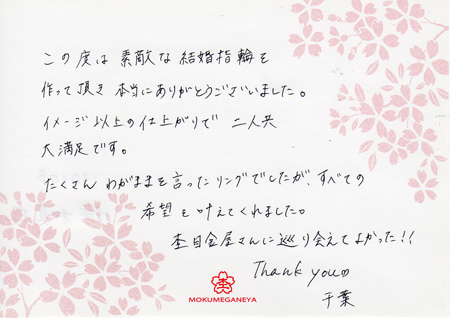 この度は 素敵な 結婚指輪を
作って頂き 本当にありがとうございました。
イメージ以上の仕上がりで 二人共
大満足です。
たくさん わがままを言ったリングでしたが、すべての
希望を叶えてくれました。
杢目金屋さんに巡り会えてよかった!!
Thank you♡
千葉
杢
MOKUMEGANEYA